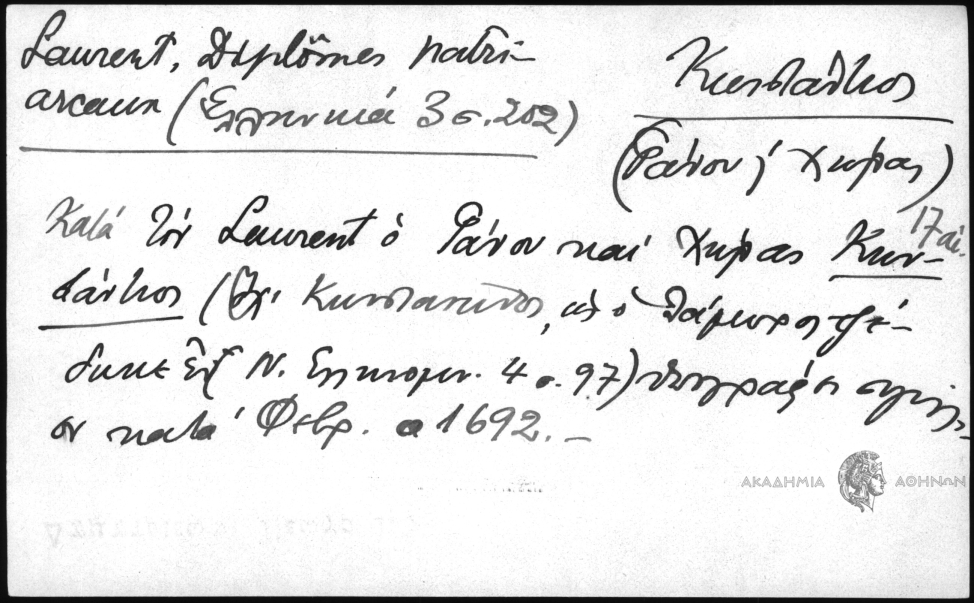 Laurent, Diplômes patri-
arcaux (Ἑλληνικά 3 σ. 202)
Κωνστάντιος
(Γάνου ἢ Χώρας)
17 αἰ.
Κατά τόν Laurent ὁ Γάνου καί Χώρας Κων-
στάντιος (ὄχι Κωνσταντῖνος, ὡς ὁ Λάμπρος ἐξέ-
δωκε ἐν Ν. Ἑλληνομν. 4 σ. 97) ὑπογράφει σιγίλλι-
ον κατά Φεβρ. 1692.-
ΑΚΑΔΗΜΙΑ ΑΘΗΝΩΝ